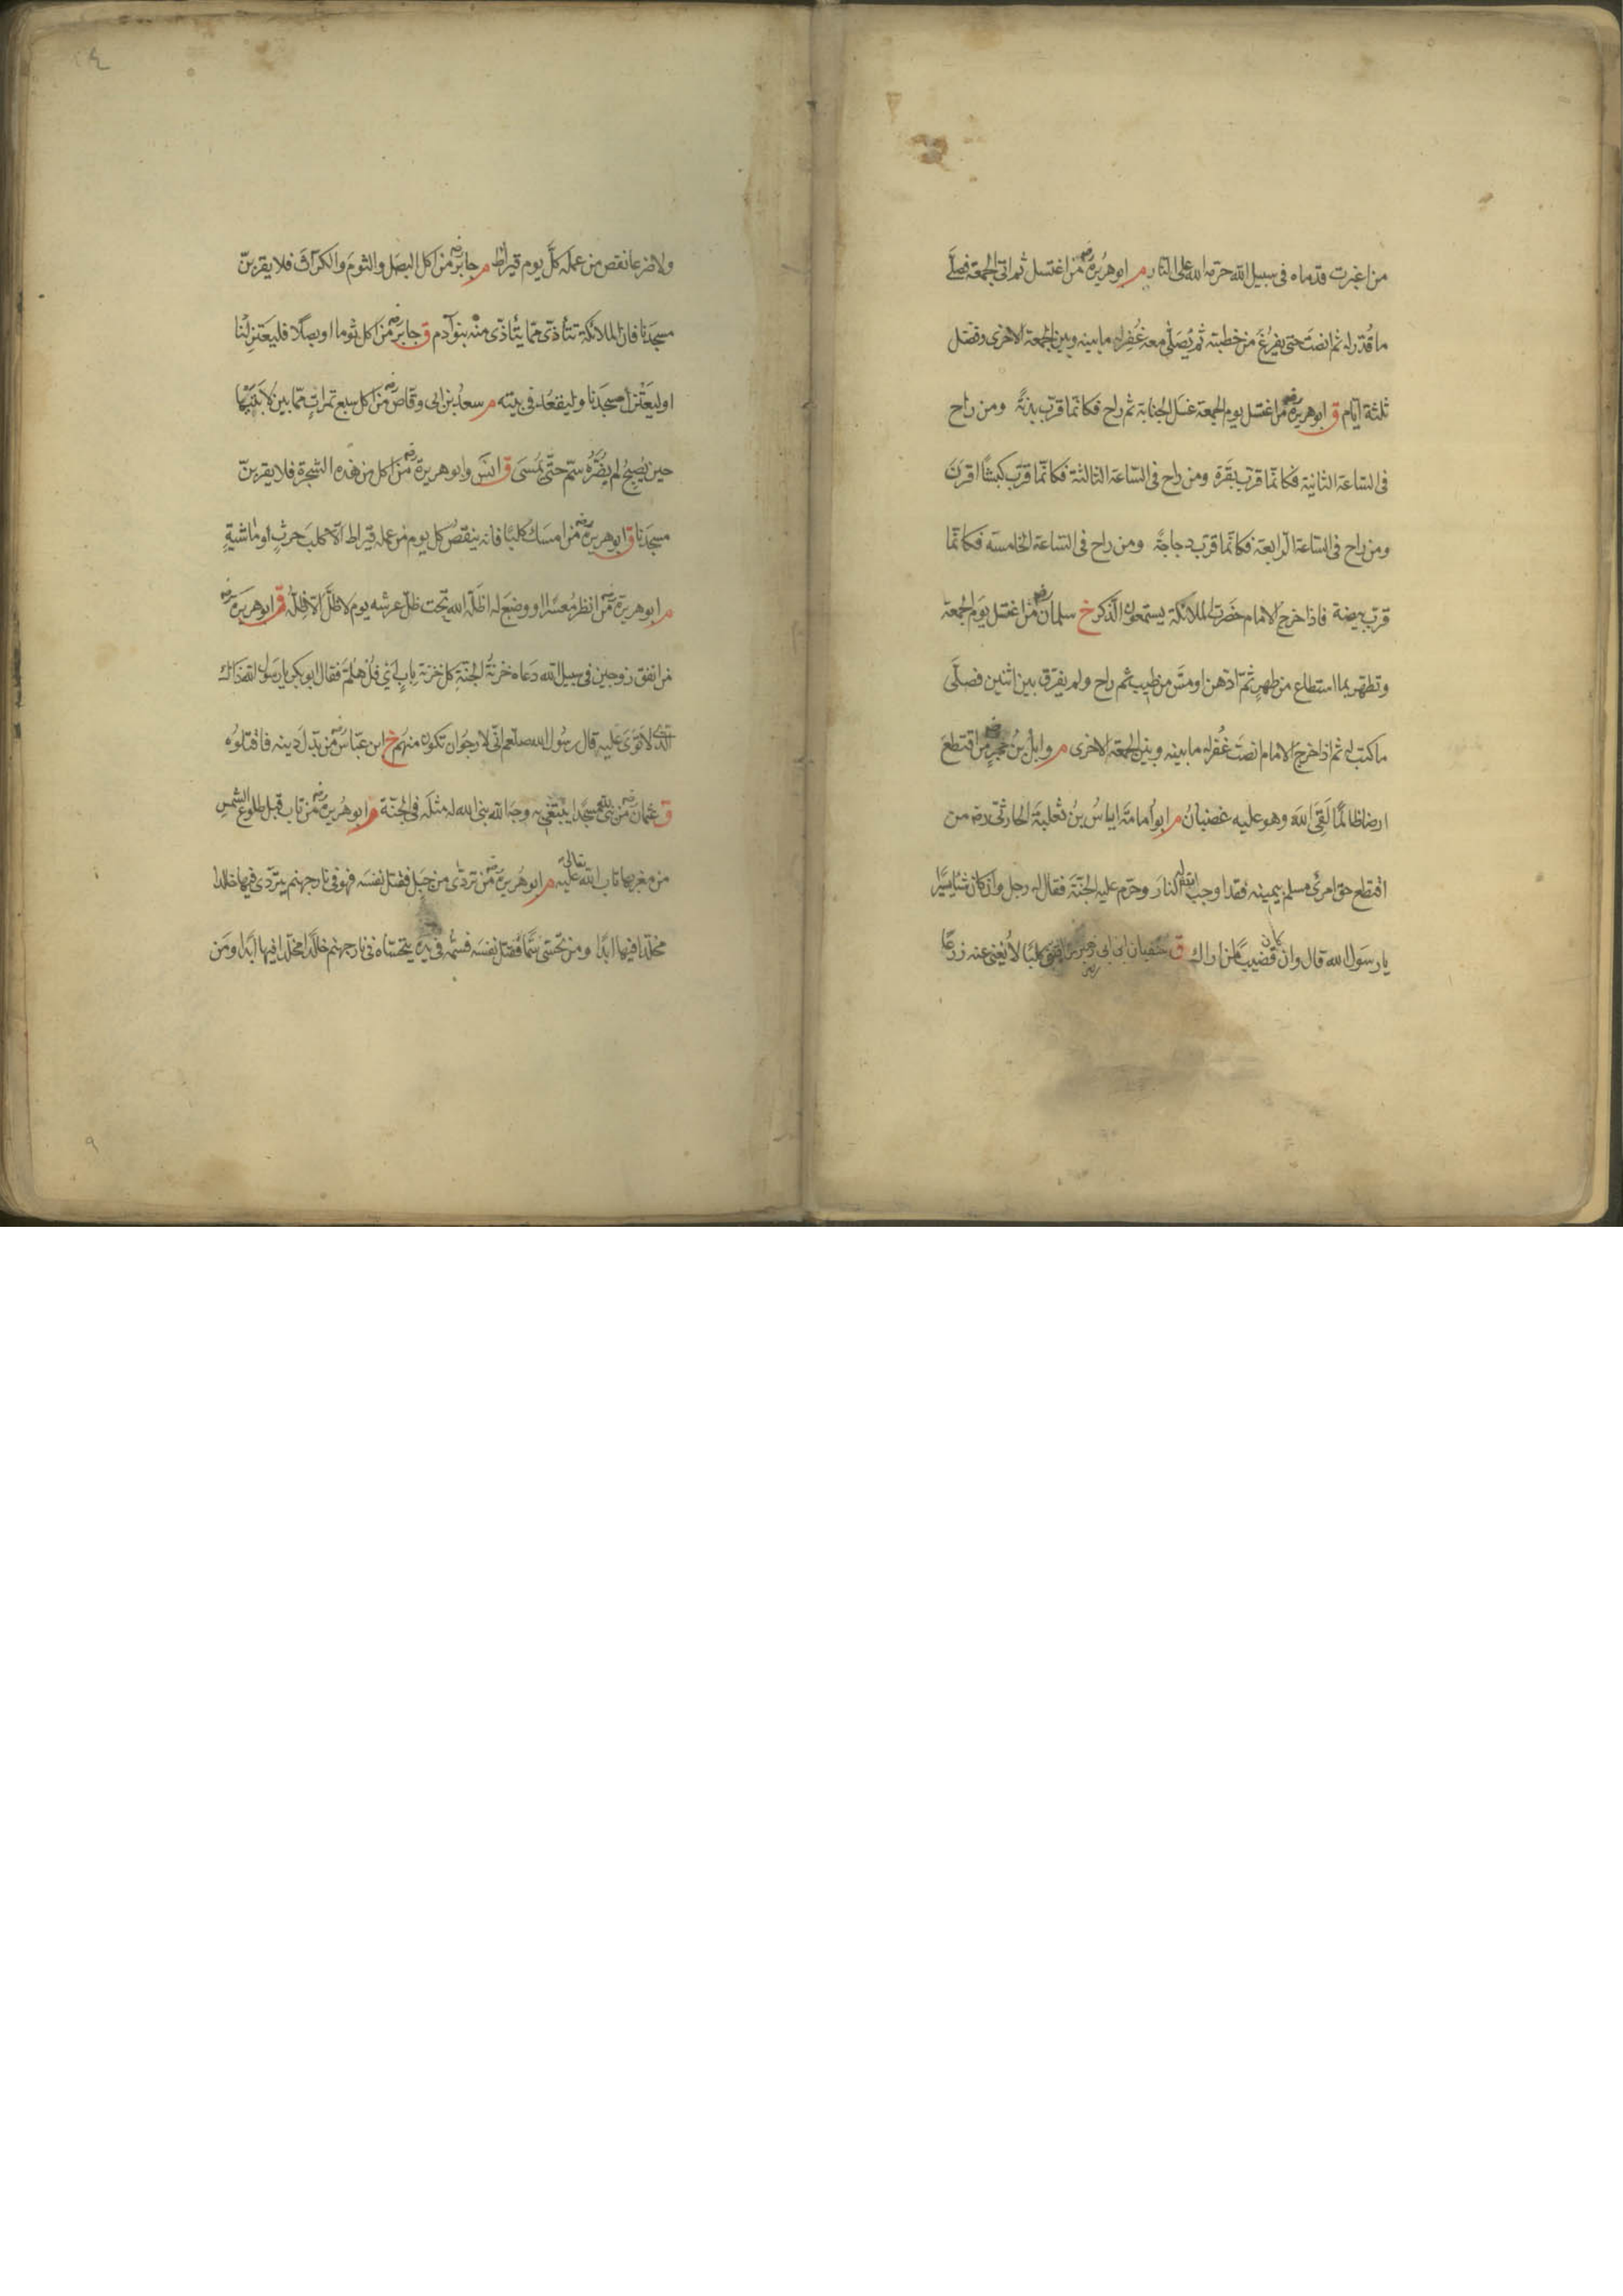 من اغبرت قدماه فى سبيل الله حرمه الله على النار م ابو هريرة رضه من اغتسل ثم اتى الجمعة فصلى
ما قدر له ثم انصت حتى يفرغ من خطبته ثم يصلى معه غفر له ما بينه وبين الجمعة الاخرى وفضل
ثلثة ايام ق ابو هريرة رضه من اغتسل يوم الجمعة غسل الجنابة ثم راح فكانما قرب بدنة ومن راح
فى الساعة الثانية فكانما قرب بقرة ومن راح فى الساعة الثالثة فكانما قرب كبشا اقرن
ومن راح فى الساعة الرابعة فكانما قرب دجاجة ومن راح فى الساعة الخامسه فكانما
قرب بيضة فاذا خرج الامام حضرت الملائكة يستمعون الذكر خ سلمان رضه من اغتسل يوم الجمعة
وتطهر بما استطاع من طهر ثم ادهن او مس من طيب ثم راح ولم يفرق بين اثنين فصلى
ما كتب له ثم اذا خرج الامام انصت غفر له ما بينه وبين الجمعة الاخرى م وايل بن حجر من اقتطع
ارضا ظالما لقى الله وهو عليه غضبان م ابو امامة اياس بن ثعلبة الحارثى رضه من
اقتطع حق امرئ مسلم بيمينه فقد اوجب الله له النار وحرم عليه الجنة فقال له رجل وان كان شيئا يسيرا
يا رسول الله قال وان كان قضيبا من اراك ق سفيان بن ابى زهير من اقتنى كلبا لا يغنى عنه زرعا
ولا ضرعا نقص من عمله كل يوم قيراط م جابر رضه من اكل البصل والثوم والكراث فلا يقربن
مسجدنا فان الملائكة تتأذى مما يتأذى منه بنو آدم ق جابر رضه من اكل ثوما او بصلا فليعتزلنا
او ليعتزل مسجدنا وليقعد فى بيته م سعد بن ابى وقاص رضه من اكل سبع تمرات مما بين لابتيها
حين يصبح لم يضره سم حتى يمسى ق انس وابو هريرة رضه من اكل من هذه الشجرة فلا يقربن
مسجدنا ق ابو هريرة رضه من امسك كلبا فانه ينقص كل يوم من عمله قيراط الا كلب حرث او ماشية
م ابو هريرة رضه من انظر معسرا او وضع له اظله الله تحت ظل عرشه يوم لا ظل الا ظله ق ابو هريرة رضه
من انفق زوجين فى سبيل الله دعاه خزنة الجنة كل خزنة باب اى فل هلم فقال ابو بكر يا رسول الله ذاك
الذى لا توى عليه قال رسول الله صلعم انى لارجو ان تكون منهم خ ابن عباس رضه من بدل دينه فاقتلوه
ق عثمان رضه من بنى لله مسجدا يبتغى به وجه الله بنى الله له مثله فى الجنة م ابو هريرة رضه من تاب قبل طلوع الشمس
من مغربها تاب الله تعالى عليه م ابو هريرة رضه من تردى من جبل فقتل نفسه فهو فى نار جهنم يتردى فيها خالدا
مخلدا فيها ابدا ومن تحسى سما فقتل نفسه فسمه فى يده يتحساه فى نار جهنم خالدا مخلدا فيها ابدا ومن